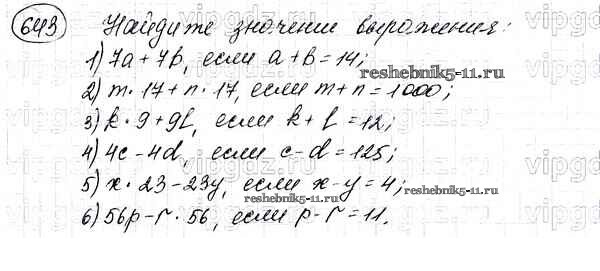 643 Найдите значение выражения:
1) 7a + 7b, если a + b = 14;
2) m · 17 + n · 17, если m + n = 1000;
3) k · 9 + 9l, если k + l = 12;
4) 4c - 4d, если c - d = 125;
5) x · 23 - 23y, если x - y = 4;
6) 56p - r · 56, если p - r = 11.
reshebnik5-11.ru
reshebnik5-11.ru